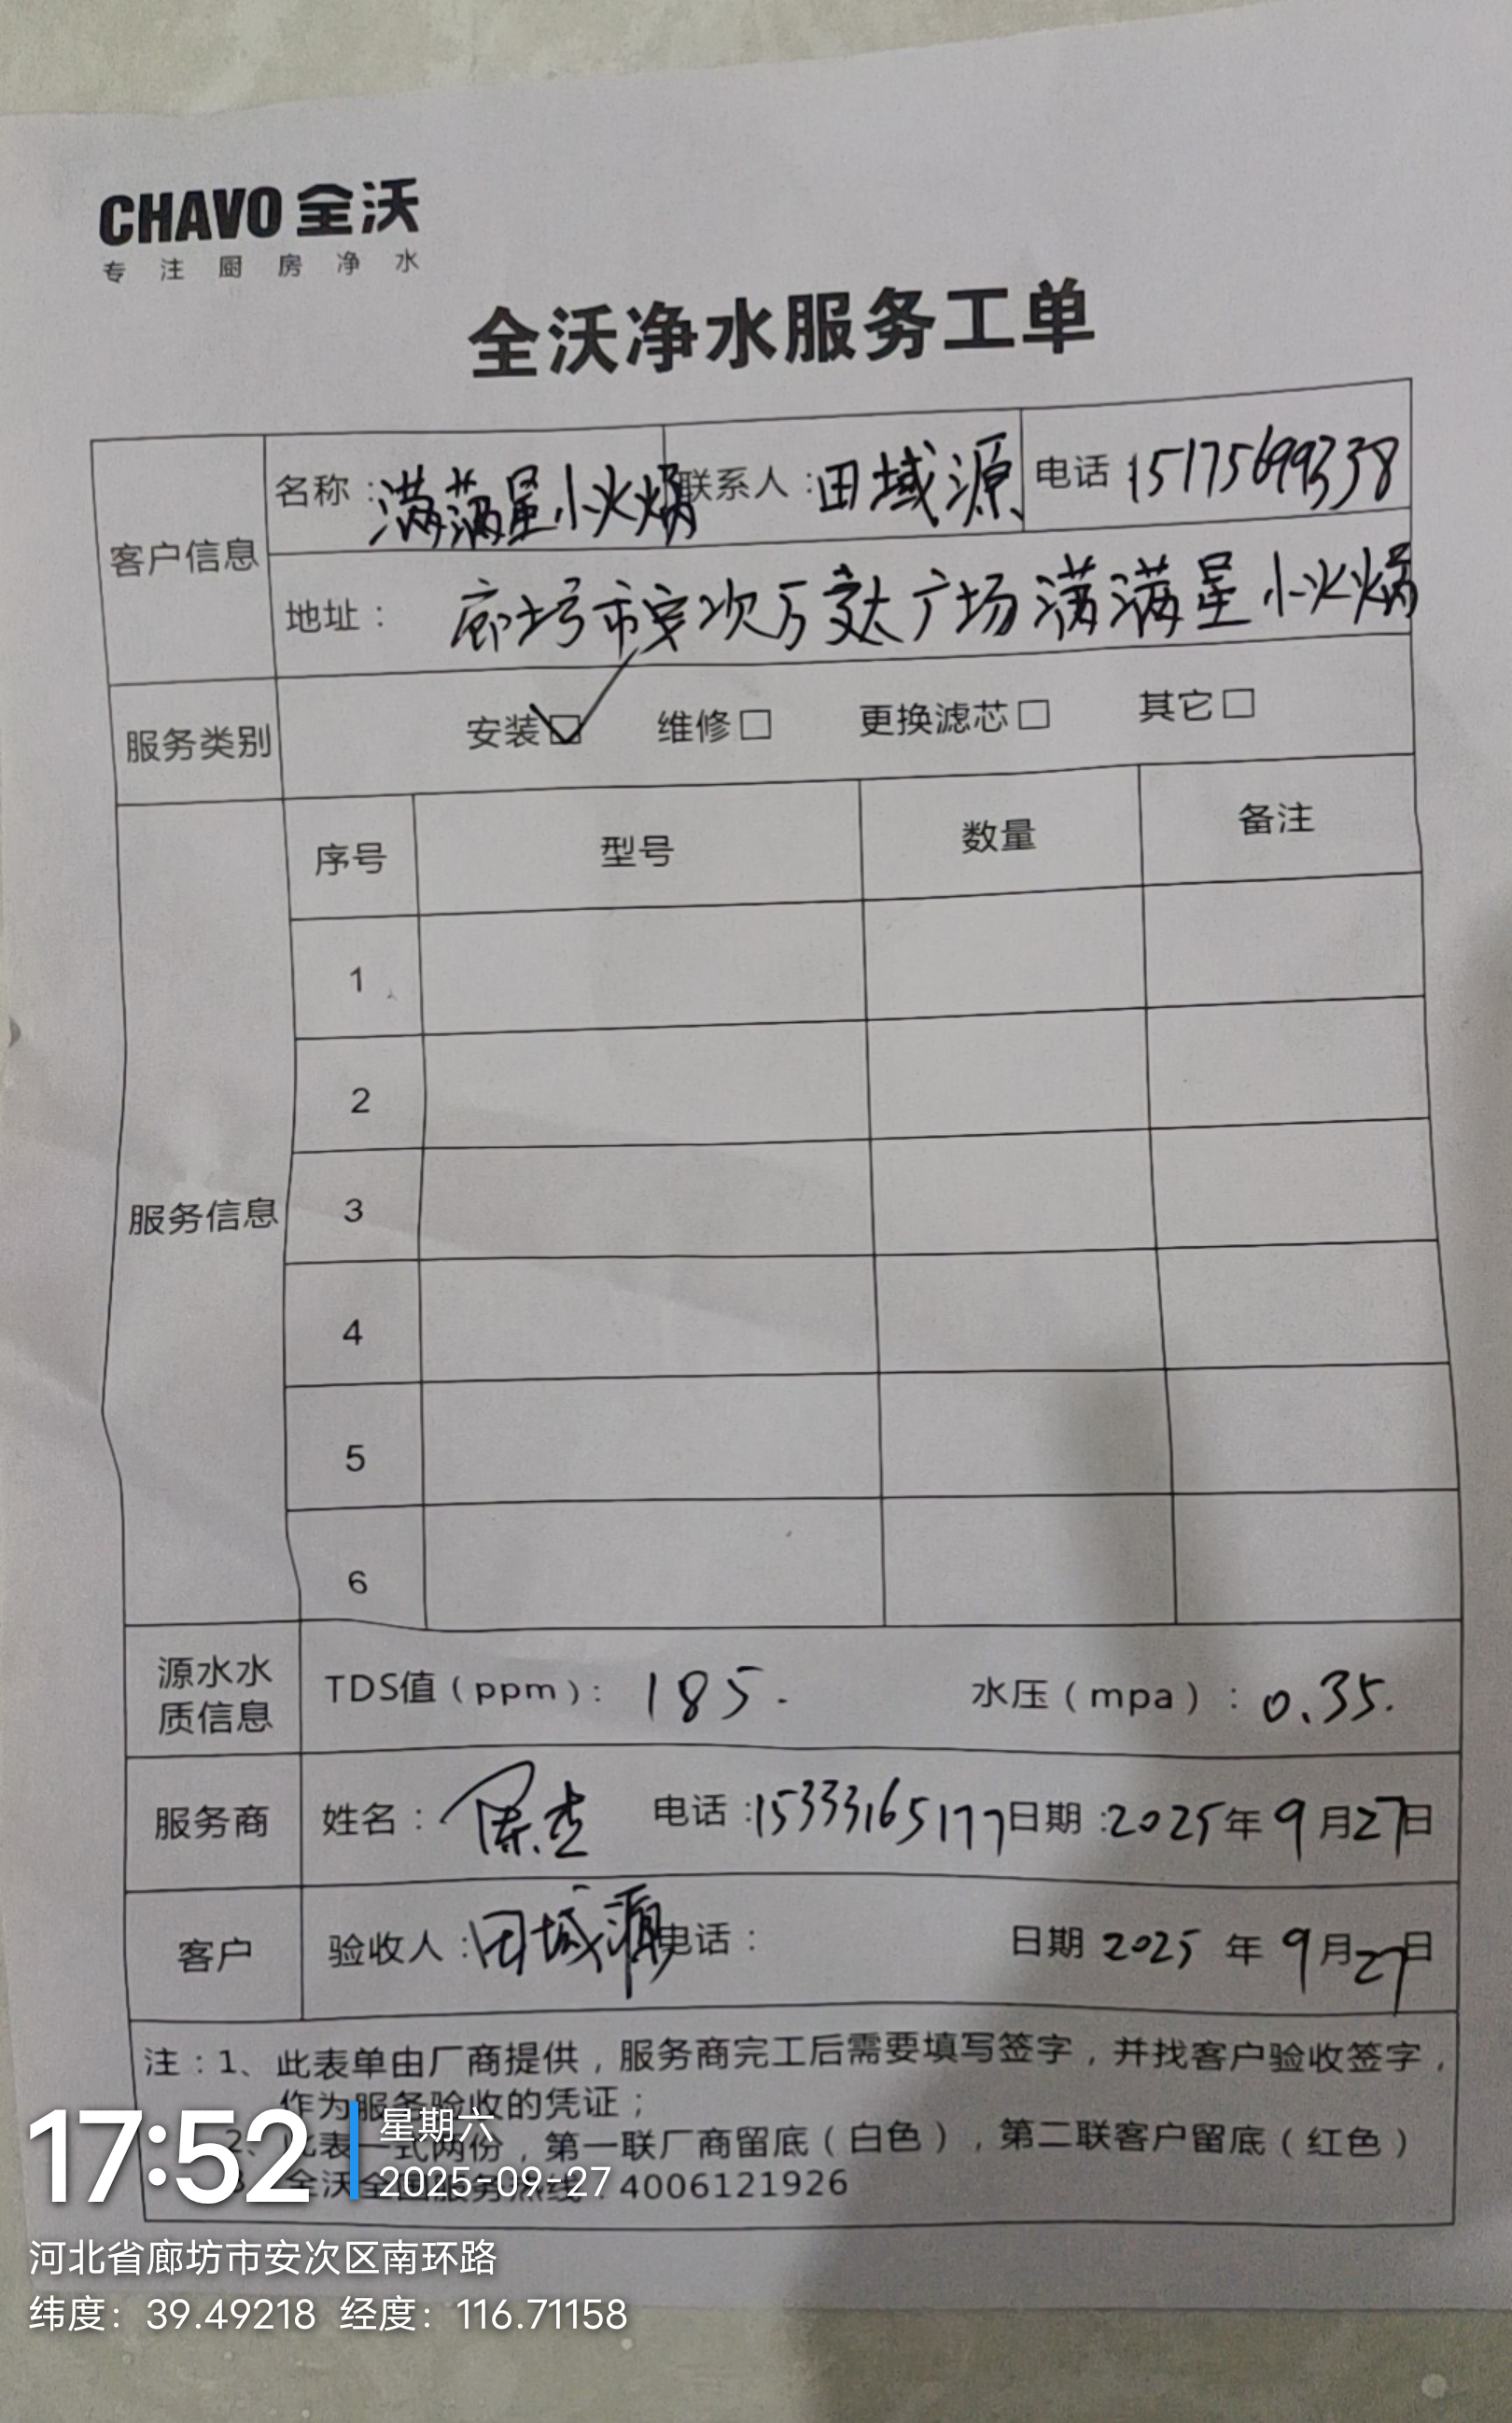 CHAVO 全沃
专注厨房净水
全沃净水服务工单
客户信息
名称：满满星小火锅 联系人：田域源 电话 15175699338
地址：廊坊市安次万达广场满满星小火锅
服务类别 安装☑ 维修□ 更换滤芯□ 其它□
服务信息
序号 型号 数量 备注
1
2
3
4
5
6
源水水质信息 TDS值（ppm）：185. 水压（mpa）：0.35.
服务商 姓名：陈杰 电话：15333165177 日期：2025年9月27日
客户 验收人：田域源 电话： 日期 2025年9月27日
注：1、此表单由厂商提供，服务商完工后需要填写签字，并找客户验收签字，
作为服务验收的凭证；
2、此表一式两份，第一联厂商留底（白色），第二联客户留底（红色）
3、全沃全国服务热线：4006121926
17:52
星期六
2025-09-27
河北省廊坊市安次区南环路
纬度：39.49218 经度：116.71158